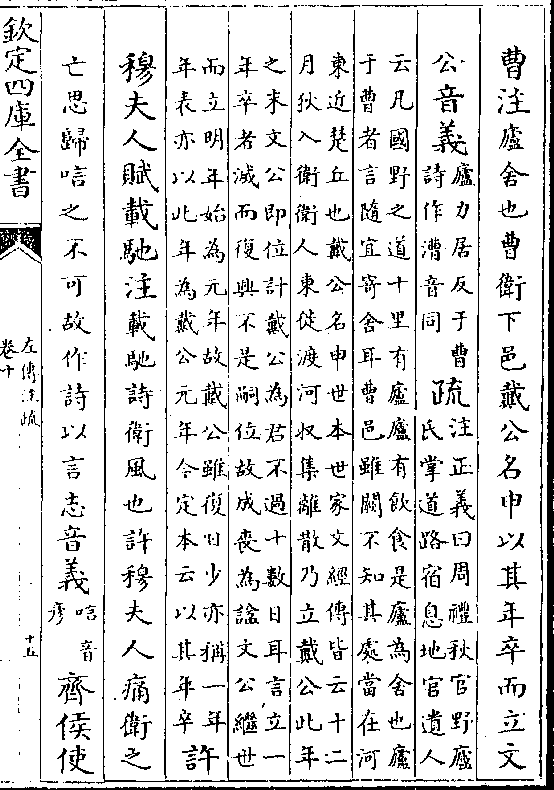 曹注廬舍也曹衛下邑戴公名申以其年卒而立文
公音義
廬力居反于曹
詩作漕音同
疏
注正義曰周禮秋官野廬
氏掌道路宿息地官遺人
云凡國野之道十里有廬廬有飲食是廬為舍也廬
于曹者言隨宜寄舍耳曹邑雖闕不知其處當在河
東近楚丘也戴公名申世本世家文經傳皆云十二
月狄入衛衛人東徙渡河收集離散乃立戴公此年
之末文公即位計戴公為君不過十數日耳言立一
年卒者滅而復興不是嗣位故成喪為諡文公繼世
而立明年始為元年故戴公雖復日少亦稱一年
年表亦以此年為戴公元年今定本云以其年卒
許
穆夫人賦載馳注載馳詩衛風也許穆夫人痛衛之
亡思歸唁之不可故作詩以言志音義
唁音
彥
齊侯使
欽定四庫全書
左傳注疏
卷十
十五